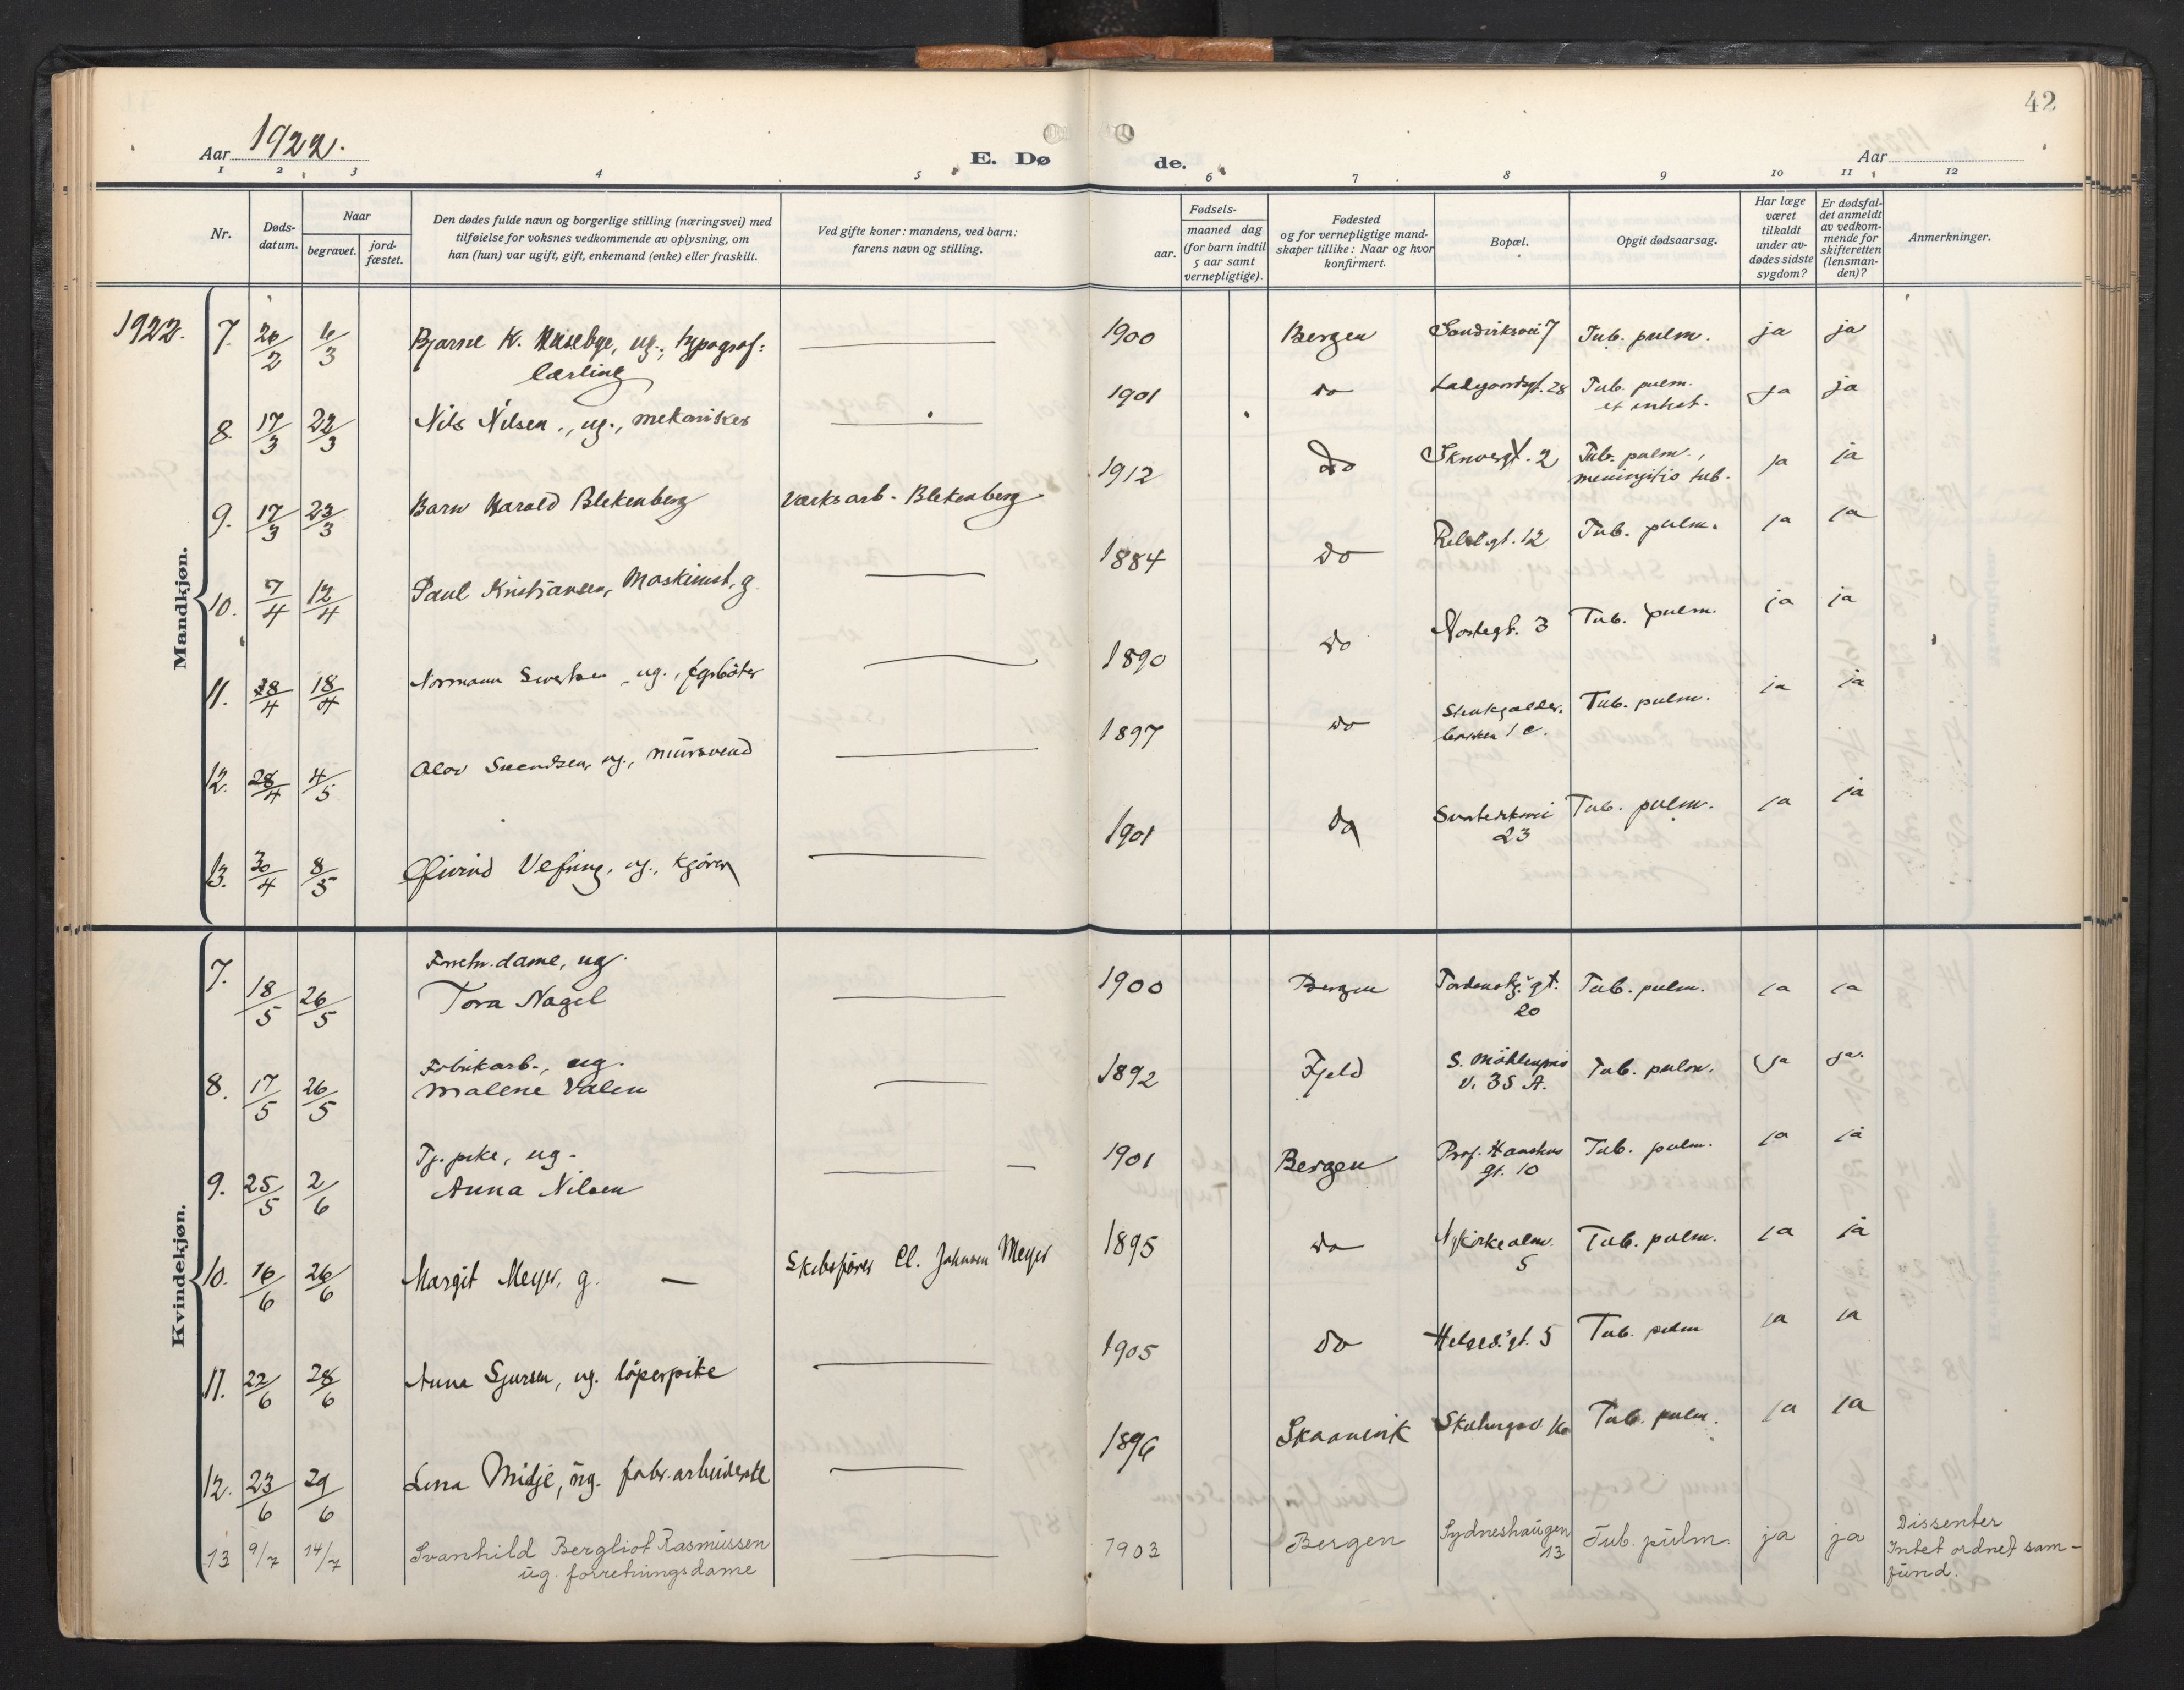 42
Aar 1922.
E. Dø
de.
Aar
1 2 3 4 5 6 7 8 9 10 11 12
Nr.
Døds-
datum.
Naar
begravet.
jord-
fæstet.
Den dødes fulde navn og borgerlige stilling (næringsvei) med
tilføielse for voksnes vedkommende av oplysning, om
han (hun) var ugift, gift, enkemand (enke) eller fraskilt.
Ved gifte koner: mandens, ved barn:
farens navn og stilling.
Fødsels-
aar.
maaned dag
(for barn indtil
5 aar samt
vernepligtige).
Fødested
og for vernepligtige mand-
skaper tillike: Naar og hvor
konfirmert.
Bopæl.
Opgit dødsaarsag.
Har læge
været
tilkaldt
under av-
dødes sidste
sygdom?
Er dødsfal-
det anmeldt
av vedkom-
mende for
skifteretten
(lensman-
den)?
Anmerkninger.
1922.
Mandkjøn.
7. 26/2 6/3 Bjarne K. Husebye, ug., typograf- 1900 Bergen Sandviksvei 7 Tub. pulm. ja ja
lærling
8. 17/3 22/3 Nils Nilsen, ug., mekaniker 1901 do Ladegaardsgt. 28 Tub. pulm. ja ja
et intest.
9. 17/3 23/3 Barn Harald Blekenberg Værksarb. Blekenberg 1912 do 2 Tub. pulm., ja ja
meningitis tub.
10. 7/4 12/4 Paul Kristiansen, Maskinist, g. 1884 do 12 Tub. pulm. ja ja
11. /4 18/4 Normann ug., 1890 do Nøstegt. 3 Tub. pulm. ja ja
12. 28/4 4/5 Olav Svendsen, ug., mursvend 1897 do Stenkjælder- Tub. pulm. ja ja
1 c.
13. 30/4 8/5 Øivind ug., kjører 1901 do Tub. pulm. ja ja
23
Kvindekjøn.
Forretn. dame, ug.
7. 18/5 26/5 Tora Nagel 1900 Bergen Tordenskj. gt. Tub. pulm. ja ja
20
Fabrikarb., ug.
8. 17/5 26/5 Malene Valen 1892 Fjeld S. Möhlenpris Tub. pulm. ja ja
v. 35 A.
Tj. pike, ug.
9. 25/5 2/6 Anna Nilsen 1901 Bergen Prof. Hansens Tub. pulm. ja ja
gt. 10
10. 16/6 26/6 Margit Meyer, g. — Skibsfører Cl. Johnsen Meyer 1895 do Nykirkealm. Tub. pulm. ja ja
5
11. 22/6 28/6 Anna Sjursen, ug. løperpike 1905 do Helgesgt. 5 Tub. pulm ja ja
12. 23/6 29/6 Lina Midje, ug. fabr. arbeiderske 1896 Skaanevik Tub. pulm. ja ja
13 9/7 14/7 Svanhild Bergliot Rasmussen 1903 Bergen Sydneshaugen Tub. pulm. ja ja Dissenter
ug. forretningsdame 13 Intet ordnet sam-
fund.